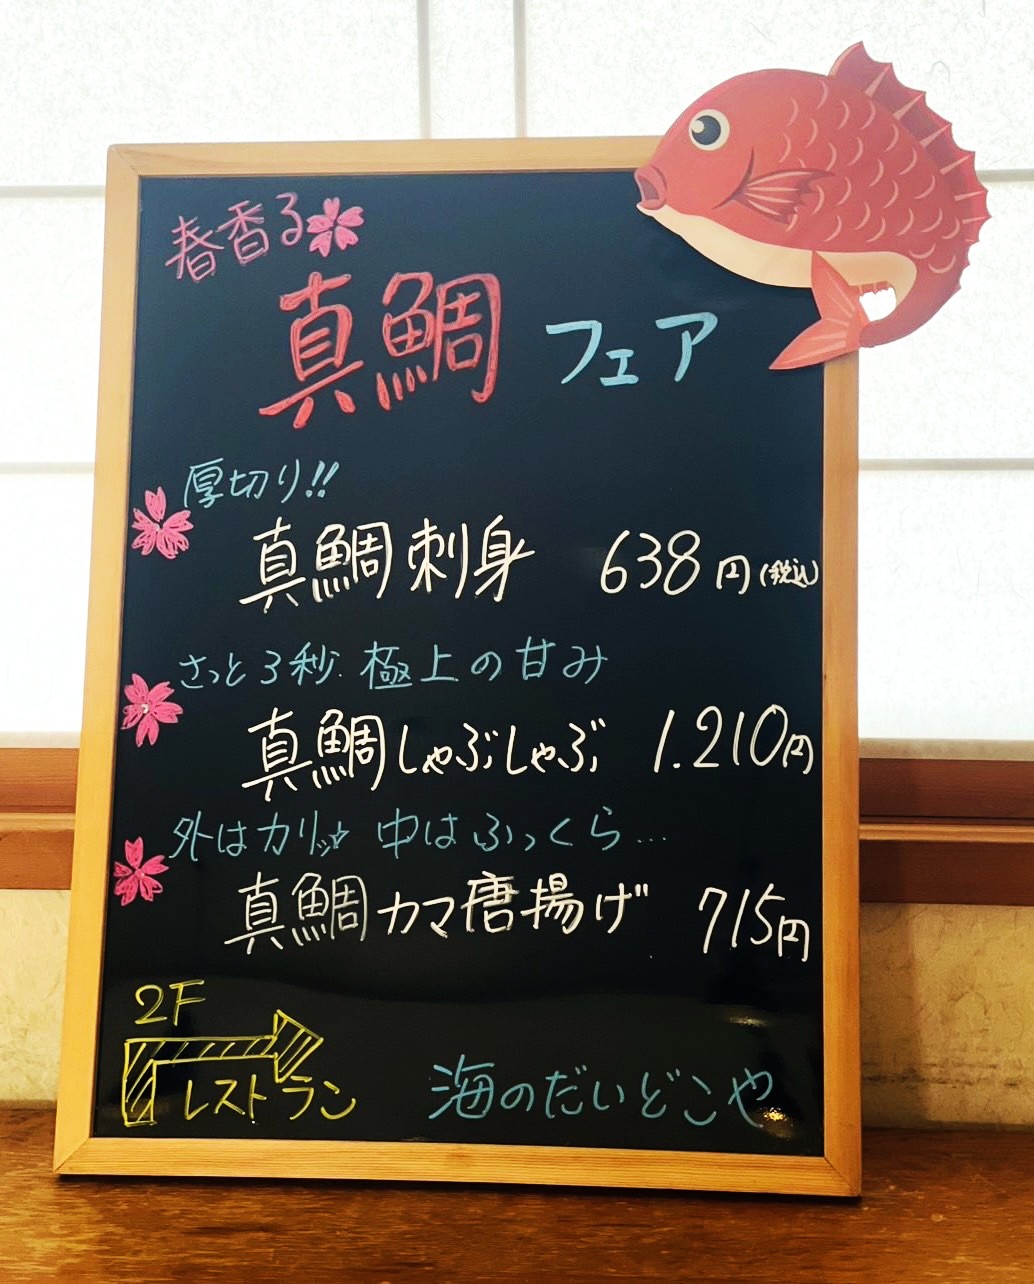 春香る
真鯛フェア
厚切り!!
真鯛刺身 638円(税込)
さっと3秒.極上の甘み
真鯛しゃぶしゃぶ 1.210円
外はカリッ☆ 中はふっくら...
真鯛カマ唐揚げ 715円
2F
レストラン
海のだいどこや